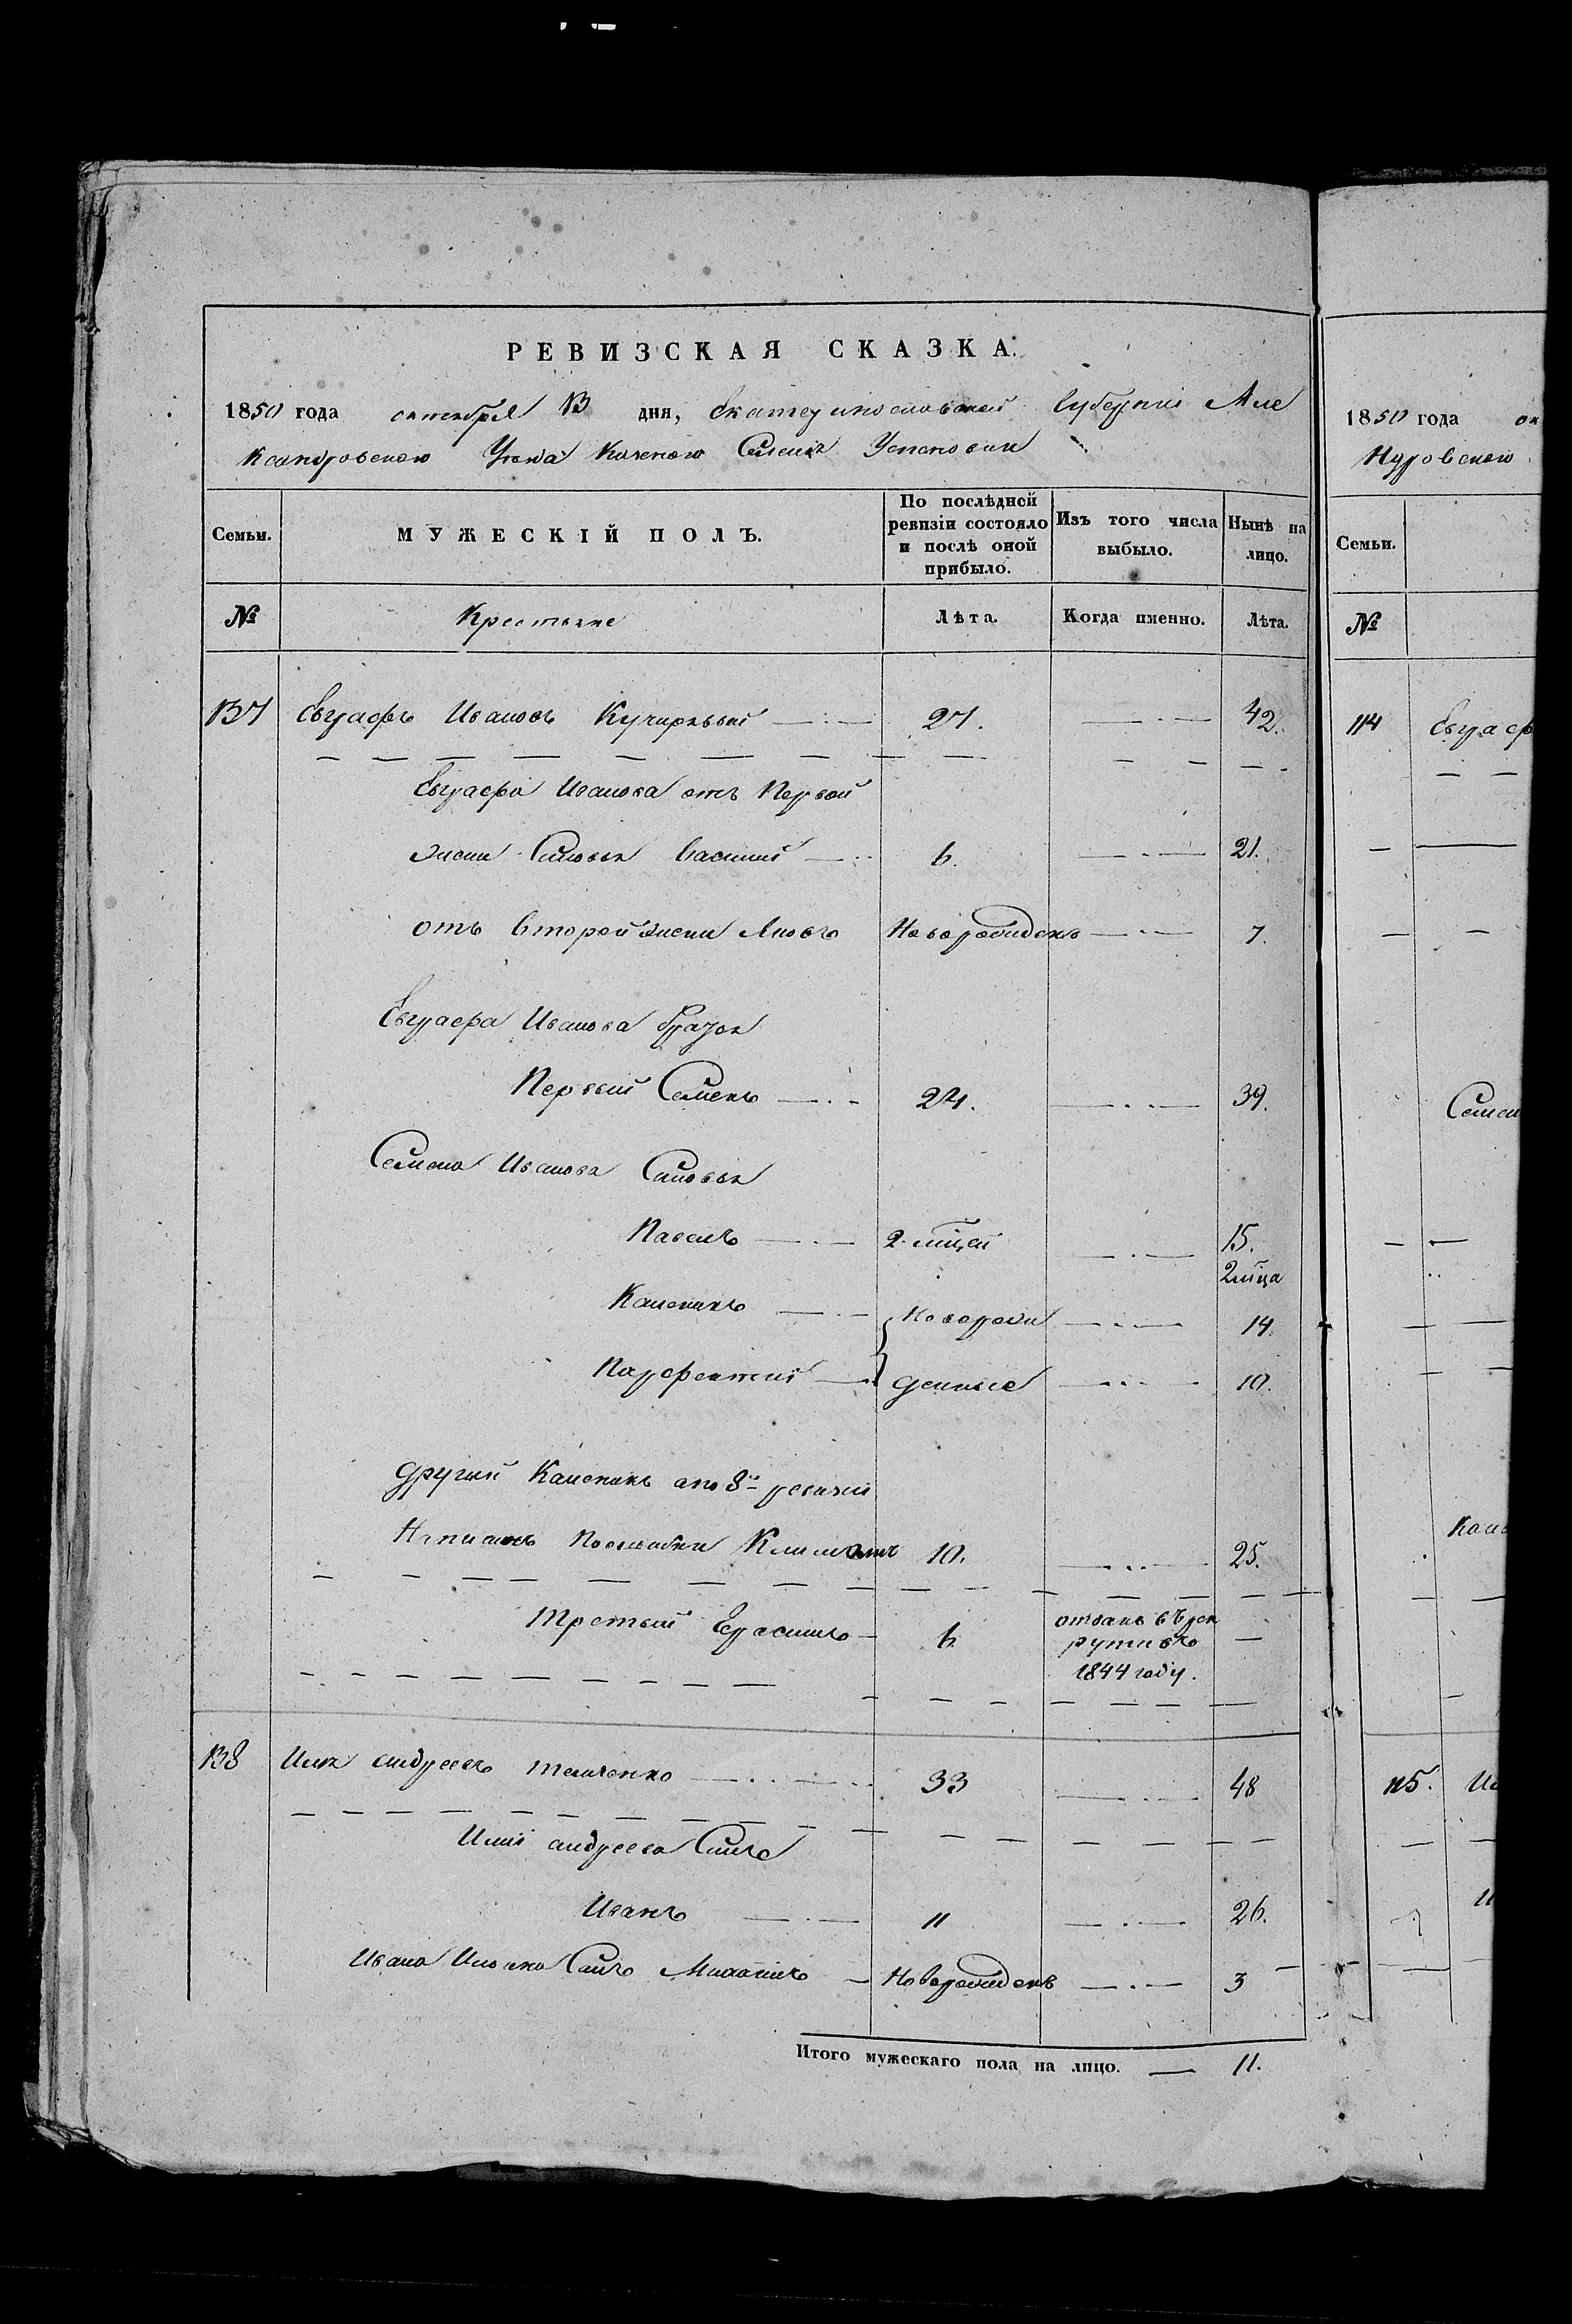 РЕВИЗСКАЯ СКАЗКА.
1850 года октября 13 дня, Екатеринославской Губерніи Але
ксандровского Уезда Казеного Селенія Успеновки
Семьи. МУЖЕСКІЙ ПОЛЪ. По послѣдней ревизіи состояло и послѣ оной прибыло. Изъ того числа выбыло. Нынѣ на лицо.
№ Крестьяне Лѣта. Когда именно. Лѣта.
137 Евграфъ Ивановъ 27. 42.
Евграфа Иванова отъ Первой
жени Сыновья Василий 6. 21.
отъ Второй жени Новорожденъ 7.
Евграфа Иванова братья
Первый Семенъ 24. 39.
Семена Иванова Сыновья
Павелъ 2 мцей 15.
2 мца
Калиникъ Новорож 14.
Парфентий денные 10.
Другий Калиникъ а по 8й ревизии
Написанъ Климомъ 10. 25.
Третый Герасимъ 6 отданъ въ рек
рути въ —
1844 году.
138 Илья Андреевъ 33 48
Ильи Андреева Сынъ
Иванъ 11 26.
Ивана Ильина Сынъ Михаилъ Новорожденъ 3
Итого мужескаго пола на лицо. — 11.
1850 года ок
Семьи.
№
114 Евграф
Семен
Кали
115. Ил